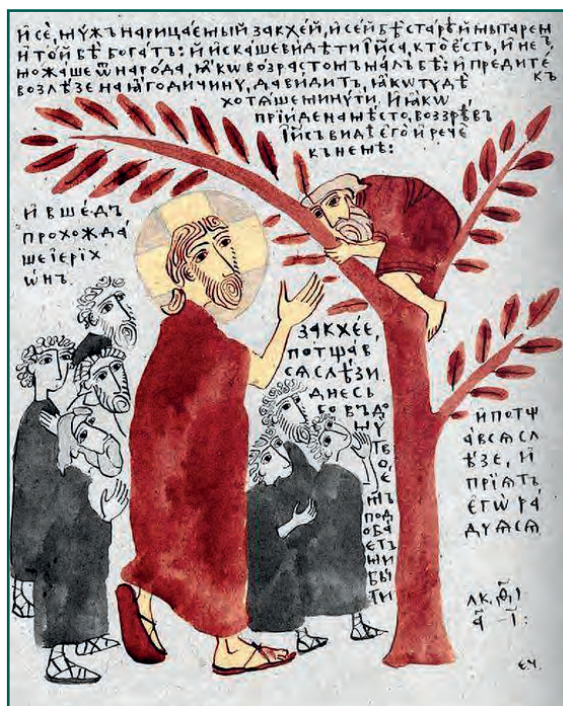 И҆ сѐ, мꙋ́жъ нарица́емый закхе́й, и҆ се́й бѣ̀ ста́рѣй мытарем
и҆ то́й бѣ̀ бога́тъ: и҆ и҆ска́ше ви́дѣти і҆и҃са, кто̀ є҆́сть, и҆ не
можа́ше ѿ наро́да, ꙗ҆́кѡ во́зрастомъ ма́лъ бѣ̀: и҆ предите
къ
возлѣ́зе на ꙗ҆́годичинꙋ, да ви́дитъ, ꙗ҆́кѡ тꙋ́дѣ
хотѧ́ше минꙋ́ти. и҆ ꙗ҆́кѡ
прїи́де на мѣ́сто, воззрѣ́въ
і҆и҃съ ви́дѣ є҆го̀ и҆ речѐ
къ немꙋ̀:
И҆ вше́дъ
прохожда́
ше і҆ерїх
ѡ́нъ.
закхе́е,
потща́в
сѧ слѣ́зи
дне́сь
бо въ до
мꙋ̀
тво
е́
мъ
под
оба́
етъ
ми
бы́
ти
и҆ потщ
а́всѧ сл
ѣ́зе, и҆
прїѧ́тъ
є҆го̀ ра́
дꙋѧсѧ
лк, ѳ҃, і
а҃ – і҃:
єч.